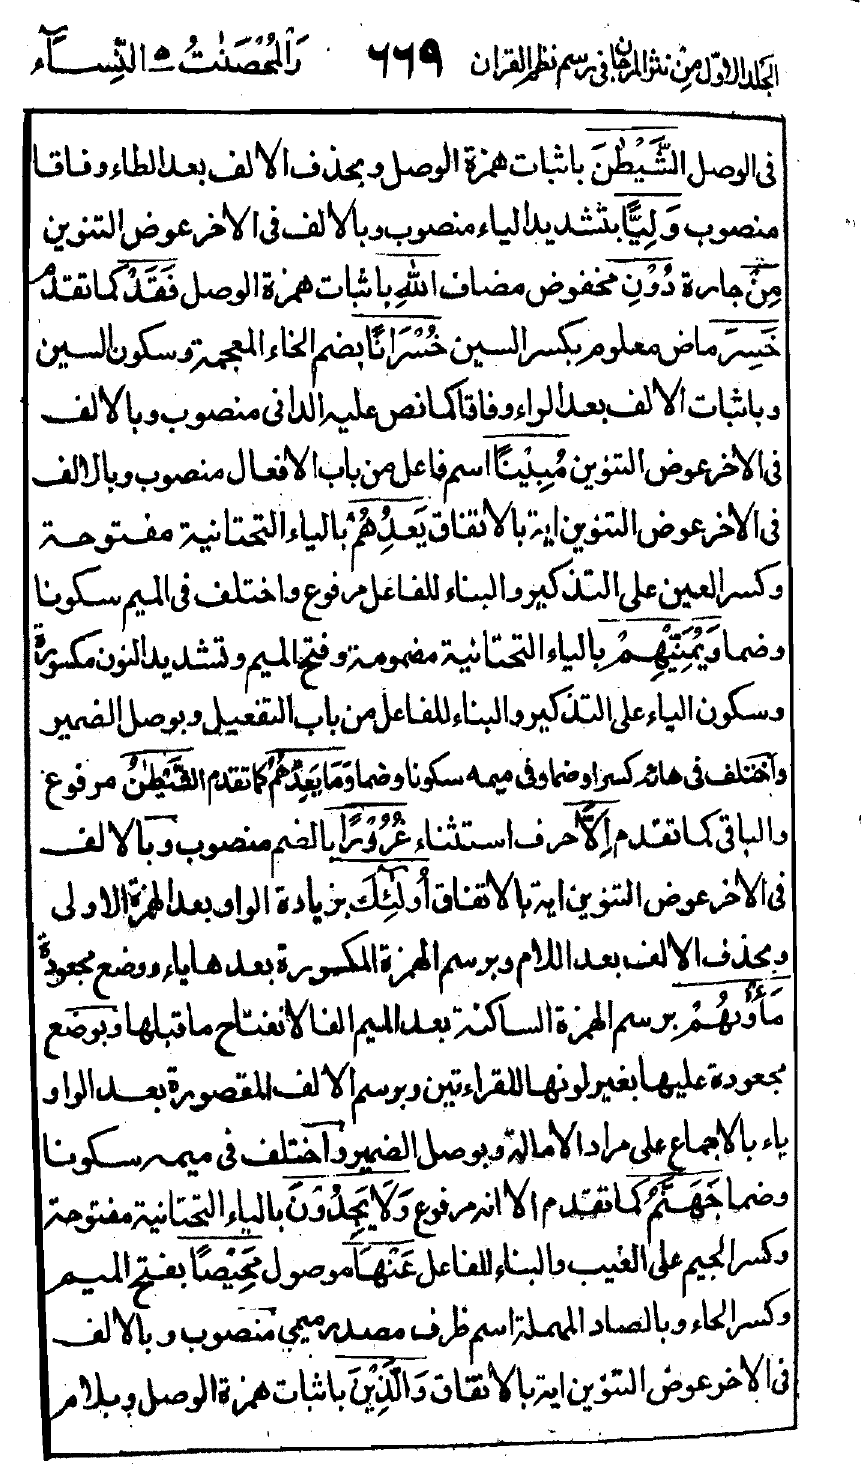 الجلد الاول من نثر المرجان فى رسم نظم القران ٦٦٩ وَالْمُحْصَنٰتُ ٥ النِّسَآء
فى الوصل الشَّيْطٰنَ باثبات همزة الوصل وبحذف الالف بعد الطاء وفاقا
منصوب وَلِيًّا بتشديد الياء منصوب وبالالف فى الاخر عوض التنوين
مِنْ جارة دُوْنِ مخفوض مضاف اللهِ باثبات همزة الوصل فَقَدْ كما تقدم
خَسِرَ ماض معلوم بكسر السين خُسْرَانًا بضم الخاء المعجمة وسكون السين
وباثبات الالف بعد الراء وفاقا كما نص عليه الدانى منصوب وبالالف
فى الاخر عوض التنوين مُبِيْنًا اسم فاعل من باب الافعال منصوب وبالالف
فى الاخر عوض التنوين اية بالاتفاق يَعِدُهُمْ بالياء التحتانية مفتوحة
وكسر العين على التذكير والبناء للفاعل مرفوع واختلف فى الميم سكونا
وضما وَيُمَنِّيْهِمْ بالياء التحتانية مضمومة وفتح الميم وتشديد النون مكسورة
وسكون الياء على التذكير والبناء للفاعل من باب التفعيل وبوصل الضمير
واختلف فى هائه كسرا وضما وفى ميمه سكونا وضما وَمَا يَعِدُهُمُ كما تقدم الشَّيْطٰنُ مرفوع
والباقى كما تقدم اِلَّا حرف استثناء غُرُوْرًا بالضم منصوب وبالالف
فى الاخر عوض التنوين اية بالاتفاق اُولٰٓئِكَ بزيادة الواو بعد الهمزة الاولى
وبحذف الالف بعد اللام وبرسم الهمزة المكسورة بعدها ياء ووضع مجعودة
مَأْوٰىهُمْ برسم الهمزة الساكنة بعد الميم الفا لانفتاح ما قبلها وبوضع
مجعودة عليها بغير لونها للقراءتين وبرسم الالف المقصورة بعد الواو
ياء بالاجماع على مراد الامالة وبوصل الضمير واختلف فى ميمه سكونا
وضما جَهَنَّمُ كما تقدم الا انه مرفوع وَلَا يَجِدُوْنَ بالياء التحتانية مفتوحة
وكسر الجيم على الغيب والبناء للفاعل عَنْهَا موصول مَحِيْصًا بفتح الميم
وكسر الحاء وبالصاد المهملة اسم ظرف مصدر ميمى منصوب وبالالف
فى الاخر عوض التنوين اية بالاتفاق وَالَّذِيْنَ باثبات همزة الوصل وبلام